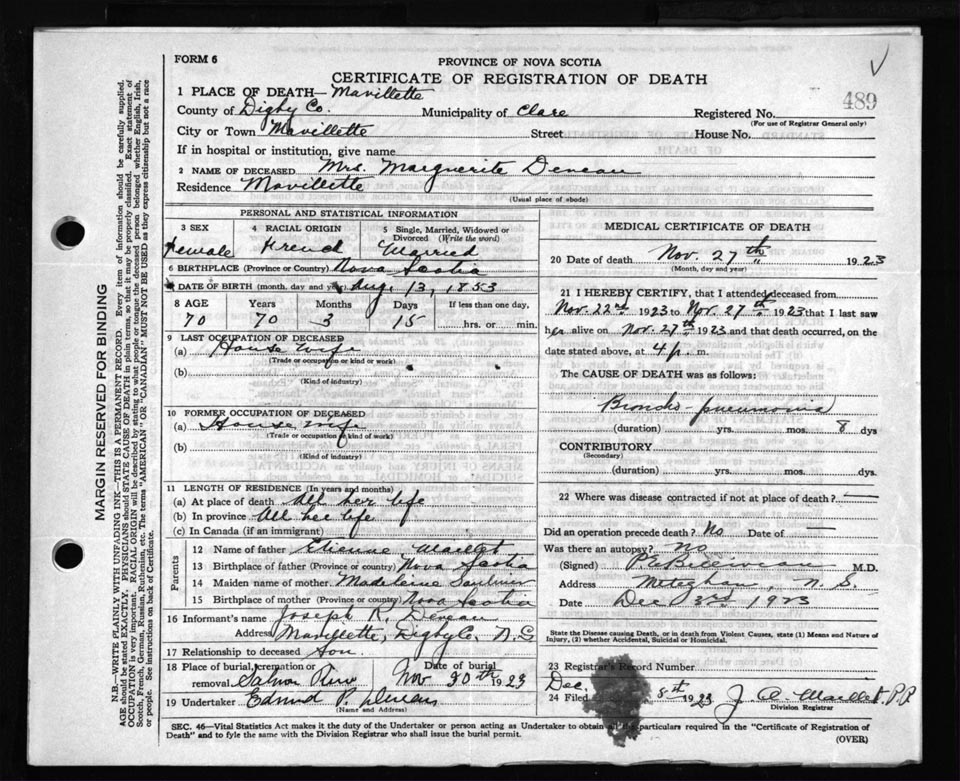 FORM 6
PROVINCE OF NOVA SCOTIA
CERTIFICATE OF REGISTRATION OF DEATH
489
1 PLACE OF DEATH— Mavillette
County of Digby Co. Municipality of Clare Registered No.
(For use of Registrar General only)
City or Town Mavillette Street House No.
If in hospital or institution, give name
2 NAME OF DECEASED Mrs. Marguerite Deveau
Residence Mavillette
(Usual place of abode)
PERSONAL AND STATISTICAL INFORMATION
3 SEX 4 RACIAL ORIGIN 5 Single, Married, Widowed or Divorced (Write the word)
Female French Married
6 BIRTHPLACE (Province or Country) Nova Scotia
DATE OF BIRTH (month, day and year) Aug. 13, 1853
8 AGE Years Months Days If less than one day,
70 70 3 15 hrs. or min.
9 LAST OCCUPATION OF DECEASED
(a) House wife
(Trade or occupation or kind of work)
(b)
(Kind of industry)
10 FORMER OCCUPATION OF DECEASED
(a) House wife
(Trade or occupation or kind of work)
(b)
(Kind of industry)
11 LENGTH OF RESIDENCE (In years and months)
(a) At place of death All her life
(b) In province All her life
(c) In Canada (if an immigrant)
Parents
12 Name of father Etienne Maillet
13 Birthplace of father (Province or country) Nova Scotia
14 Maiden name of mother Madeleine Saulnier
15 Birthplace of mother (Province or country) Nova Scotia
16 Informant's name Joseph R. Deveau
Address Mavillette, Digby Co, N.S
17 Relationship to deceased Son.
18 Place of burial, cremation or removal Salmon River Date of burial Nov 30th 1923
19 Undertaker Edmund P. Deveau
(Name and Address)
MEDICAL CERTIFICATE OF DEATH
20 Date of death Nov. 27th 1923
(Month, day and year)
21 I HEREBY CERTIFY, that I attended deceased from
Nov. 22nd 1923 to Nov. 27th 1923 that I last saw
her alive on Nov. 27th 1923 and that death occurred, on the
date stated above, at 4 p. m.
The CAUSE OF DEATH was as follows:
Broncho-pneumonia
(duration) yrs. mos. 8 dys
CONTRIBUTORY
(Secondary)
(duration) yrs. mos. dys.
22 Where was disease contracted if not at place of death?
Did an operation precede death? No Date of
Was there an autopsy? No
(Signed) M.D.
Address Meteghan, N.S.
Date Dec 3rd 1923
State the Disease causing Death, or in death from Violent Causes, state (1) Means and Nature of Injury, (2) whether Accidental, Suicidal or Homicidal.
23 Registrar's Record Number
24 Filed Dec. 8th 1923 J. A. Maillet P.P.
Division Registrar
SEC. 46—Vital Statistics Act makes it the duty of the Undertaker or person acting as Undertaker to obtain all particulars required in the "Certificate of Registration of
Death" and to fyle the same with the Division Registrar who shall issue the burial permit.
(OVER)
MARGIN RESERVED FOR BINDING
N.B.—WRITE PLAINLY WITH UNFADING INK—THIS IS A PERMANENT RECORD. Every item of information should be carefully supplied.
AGE should be stated EXACTLY. PHYSICIANS should STATE CAUSE OF DEATH in plain terms, so that it may be properly classified. Exact statement of
OCCUPATION is very important. RACIAL ORIGIN will be described by stating to what people or tongue the deceased person belonged whether English, Irish,
Scotch, French, German, Russian, Ruthenian, etc. The terms "AMERICAN" OR "CANADIAN" MUST NOT BE USED as they express citizenship but not a race
or people. See instructions on back of Certificate.